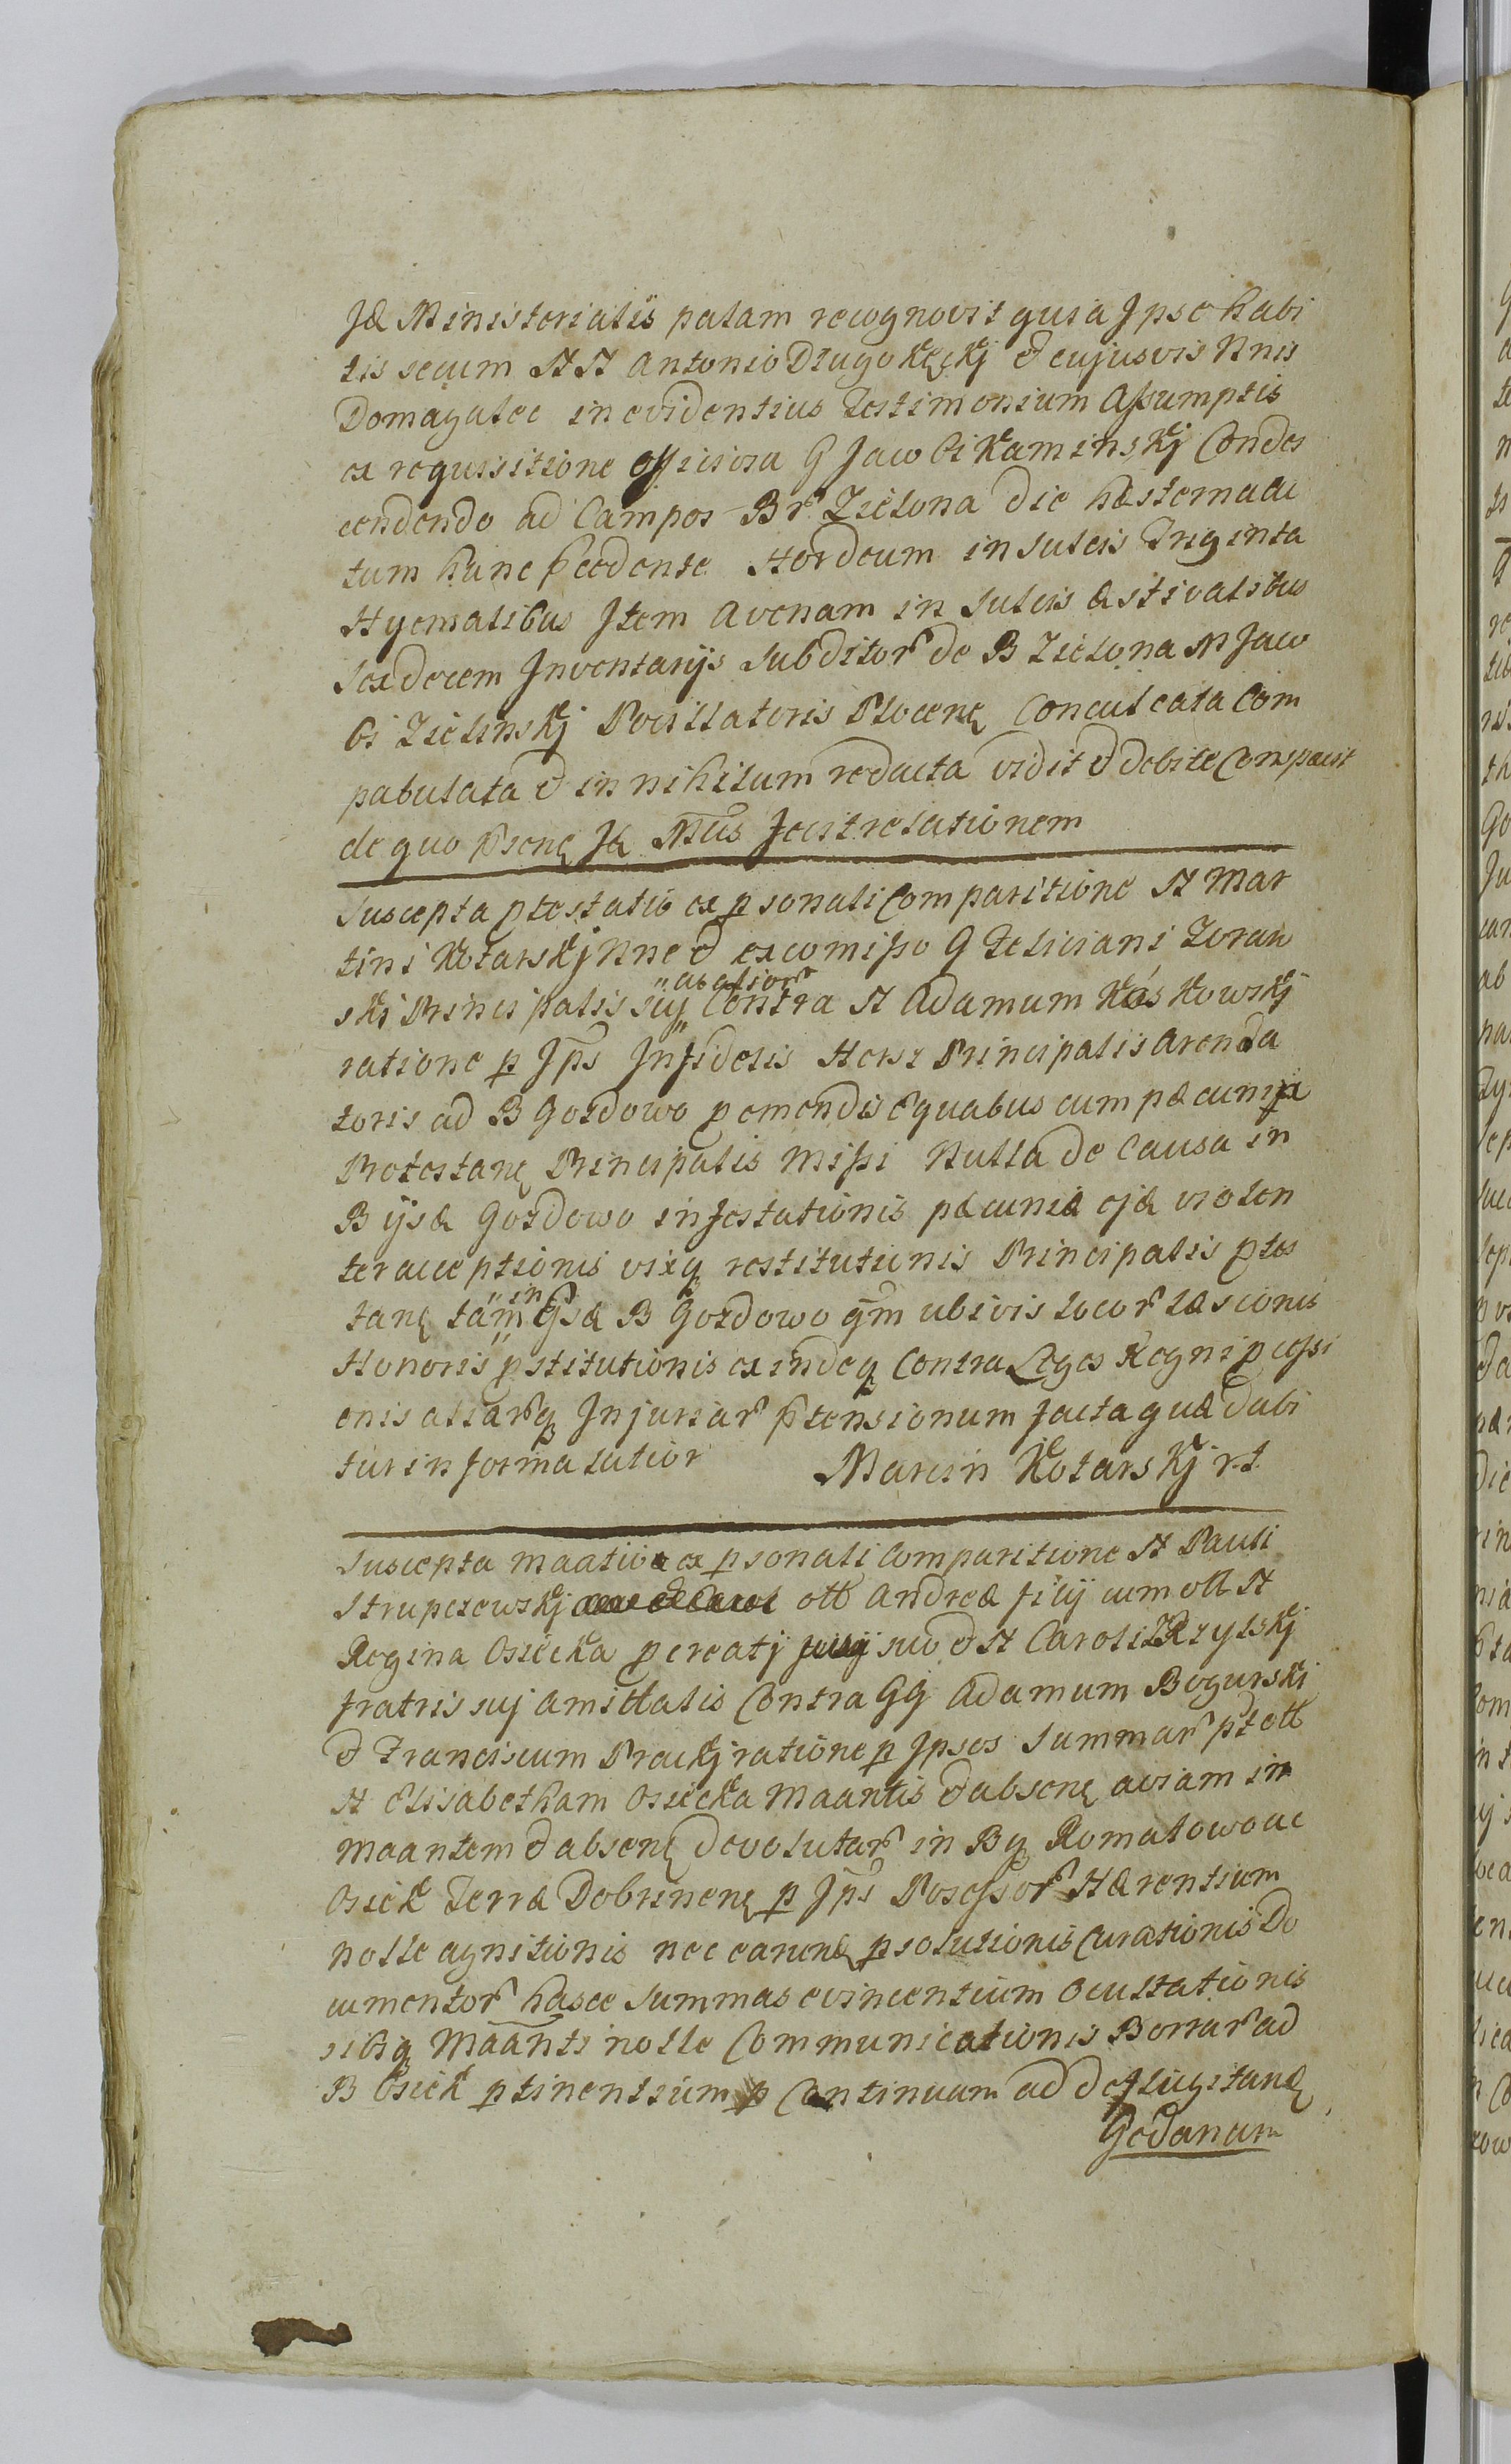 Jd Ministerialis palam recognovit quia Ipse habi
tis secum NN Antonio Długokęckj & cujusvis Nnis
Domagalec in evidentius Testimonium Assumptis
ex requisitione officiosa G Jacobi Kaminskj Condes
cendendo ad Campos Br Zielona die hæsterna ac
tum hunc pcedente Hordeum in sulcis Triginta
Hyemalibus Item Avenam in sulcis æstivalibus
sexdecem Inventarijs subditor de B Zielona M Jaco
bi Zielinskj Pocillatoris Plocens Conculcata Com
pabulata & in nihilum redacta vidit & debite Conspexit
de quo psens Jd Mtlis fecit relationem
Suscepta ptestatio ex psonali Comparitione N Mar
tini Kotarskj Nne & ex comisso G Feliciani Zoraw
ski Principalis suj Contra N Adamum Koskowskj
ac alior
ratione p Ips Infidelis Hersz Principalis Arenda
toris ad B Gozdowo p emendis equabus cum pæcunia
Protestans Principalis missi Nulla de Causa in
B ijsd Gozdowo infestationis pæcuniæ ejd violen
ter acceptionis vixq restitutionis Principalis ptes
tans tam in ijsd B Gozdowo qm ubivis locor læsionis
Honoris pstitutionis exindeq Contra Leges Regni pcessi
onis aliarq Injuriar ptensionum facta quæ dabi
tur in forma latior Marcin Kotarskj r.t.
Suscepta maatio ex psonali Comparitione N Pauli
Strupczewskj oll Andreæ filij cum oll N
Regina Osiecka pcreatj suo & N Caroli
fratris suj amittalis Contra GG Adamum Bogurskj
& Franciscum Prackj ratione p Ipsos Summar pt oll
N Elisabetham Osiecka Maantis & absens aviam in
maantem & absens devolutar in Bq Romatowo ac
Osiek Terræ Dobrinens p Ips Possessor Hærentium
nolle agnitionis nec earund psolutionis Curationis Do
cumentor hasce summas evincentium Ocultationis
sibiq Maanti nolle Communicationis Bonrar ad
B Osiek ptinentium p Continuam ad
Gedanam